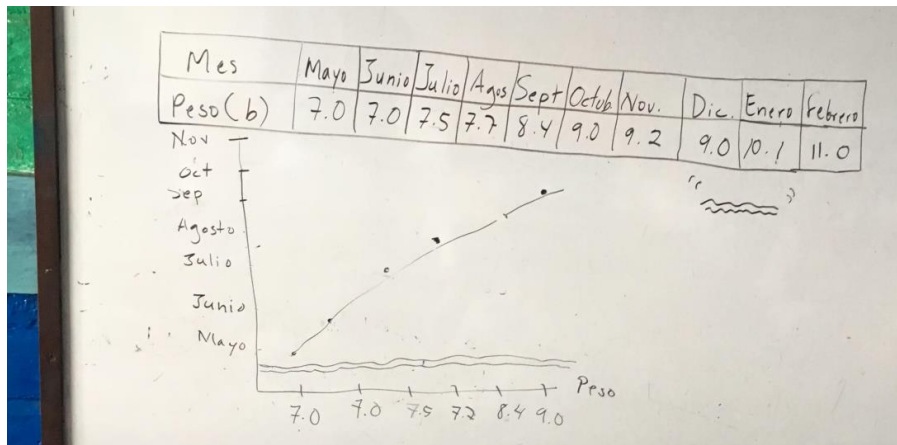 Mes Mayo Junio Julio Agos Sept Octub. Nov. Dic. Enero Febrero
Peso (b) 7.0 7.0 7.5 7.7 8.4 9.0 9.2 9.0 10.1 11.0
Nov
Oct
Sep
Agosto
Julio
Junio
Mayo
Peso
7.0 7.0 7.5 7.2 8.4 9.0